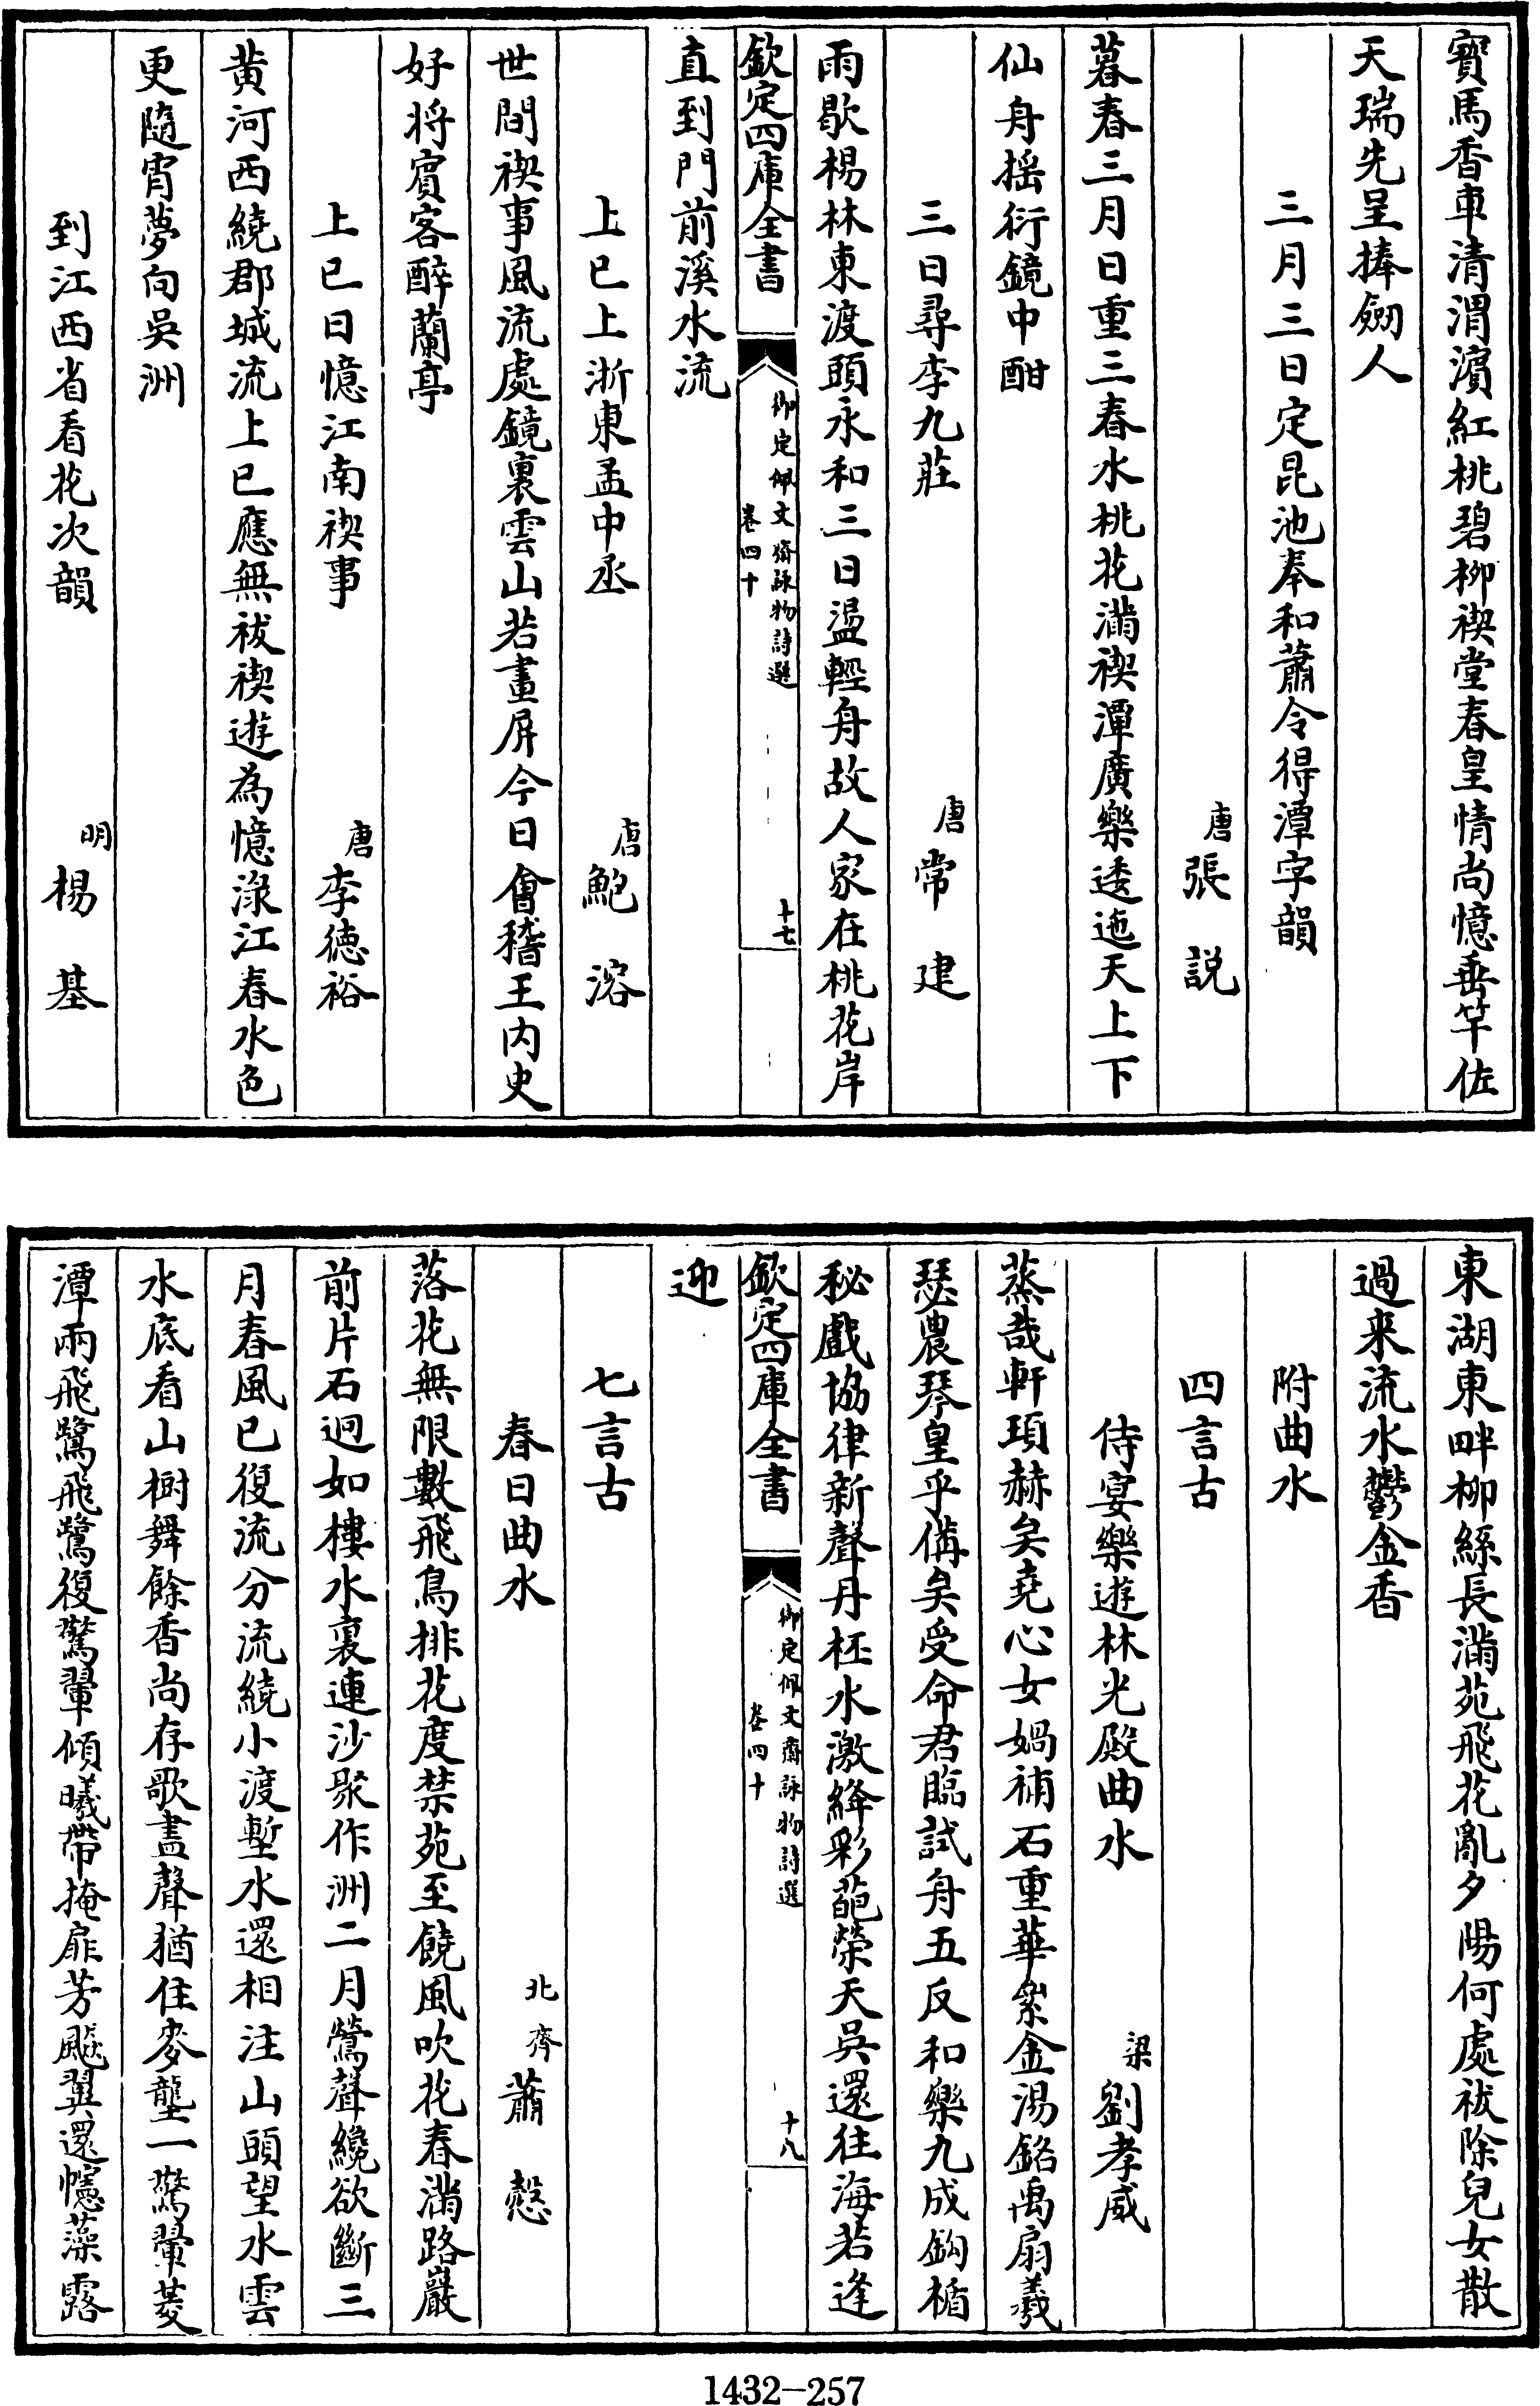 寳馬香車清渭濵紅桃碧柳禊堂春皇情尚憶垂竿佐
天瑞先呈捧劒人
三月三日定昆池奉和蕭令得潭字韻
唐張說
暮春三月日重三春水桃花滿禊潭廣樂逶迤天上下
仙舟揺衍鏡中酣
三日尋李九莊
唐常建
雨歇楊林東渡頭永和三日盪輕舟故人家在桃花岸
欽定四庫全書
御定佩文齋詠物詩選
卷四十
十七
直到門前溪水流
上巳上浙東孟中丞
唐鮑溶
世間禊事風流處鏡裏雲山若畫屏今日會稽王内史
好將賓客醉蘭亭
上巳日憶江南禊事
唐李德裕
黄河西繞郡城流上巳應無祓禊遊為憶淥江春水色
更隨宵夢向吳洲
到江西省看花次韻
明楊基
東湖東畔柳絲長滿苑飛花亂夕陽何處祓除兒女散
過来流水鬱金香
附曲水
四言古
侍宴樂遊林光殿曲水
梁劉孝威
蒸哉軒頊赫矣堯心女媧補石重華纍金湯銘禹扇羲
瑟農琴皇乎備矣受命君臨試舟五反和樂九成鈎楯
秘戲協律新聲丹柸水激絳彩葩榮天吳還往海若逢
欽定四庫全書
御定佩文齋詠物詩選
卷四十
十八
迎
七言古
春日曲水
北齊蕭慤
落花無限數飛鳥排花度禁苑至饒風吹花春滿路巖
前片石迥如樓水裏連沙聚作洲二月鶯聲纔欲斷三
月春風已復流分流繞小渡塹水還相注山頭望水雲
水底看山樹舞餘香尚存歌盡聲猶住麥壟一驚翬菱
潭兩飛鷺飛鷺復驚翬傾曦帶掩扉芳飈翼還幰藻露
1432—257